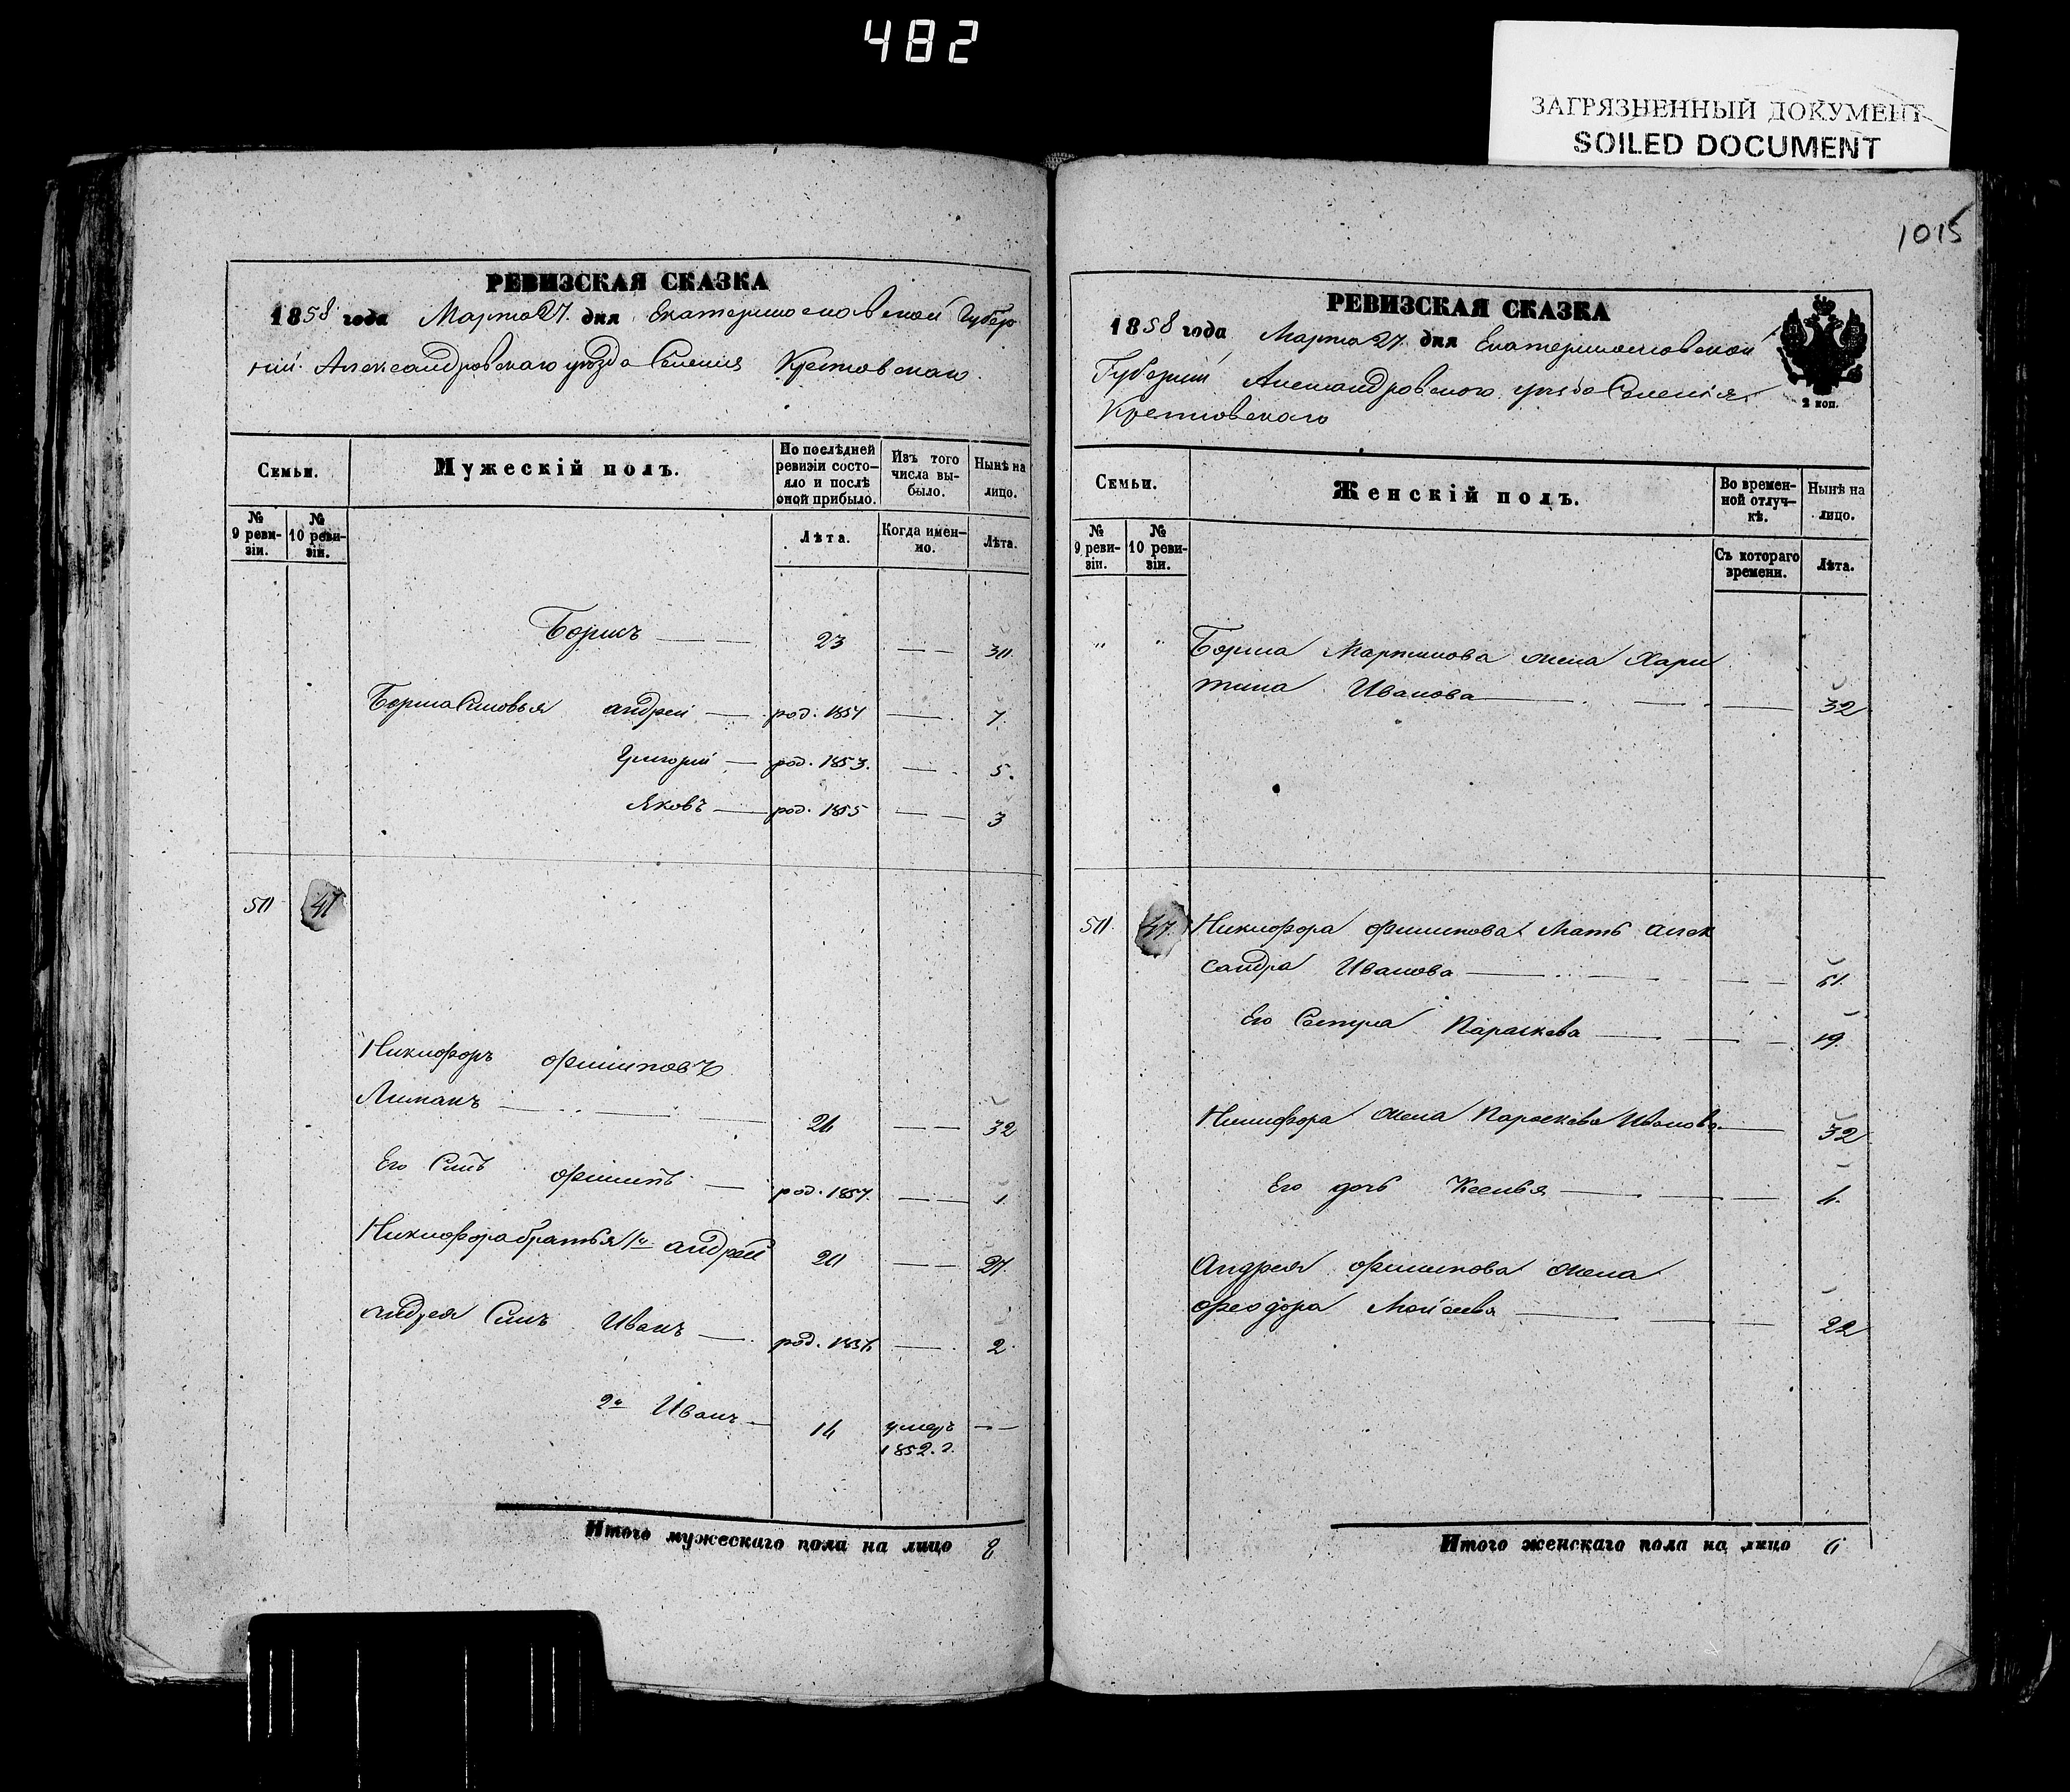 482
ЗАГРЯЗНЕННЫЙ ДОКУМЕНТ
SOILED DOCUMENT
РЕВИЗСКАЯ СКАЗКА
1858 года Марта 27. дня Екатеринославской Губер
ніи Александровскаго уѣзда Селенія Кретовскаго
Семьи.
Мужескій полъ.
По послѣдней ревизіи состо-
яло и послѣ оной прибыло.
Изъ того числа вы-
было.
Нынѣ на лицо.
№ 9 реви-
зіи.
№ 10 реви-
зіи.
Лѣта.
Когда имен-
но.
Лѣта.
Борисъ 23 — — 30.
Бориса Сыновья андрей — род. 1851 — 7.
Григорій — род. 1853. — 5.
Яковъ — род. 1855 — — 3
50 47
Никифоръ Филиповъ
Лиманъ 24 — — 32
Его Сынъ Филипъ — род. 1857. — — 1
Никифора братья 1й андрей 20 — — 27.
андрея Сынъ Иванъ — род. 1856 — 2.
2й Иванъ — 14 умеръ 1852. г. — —
Итого мужескаго пола на лицо 8
1015
РЕВИЗСКАЯ СКАЗКА
1858 года Марта 27. дня Екатеринославской
Губерніи Александровскаго уѣзда Селенія
Кретовскаго
2 коп.
Семьи.
Женскій полъ.
Во времен-
ной отлуч-
кѣ.
Нынѣ на лицо.
№ 9 реви-
зіи.
№ 10 реви-
зіи.
Съ котораго времени.
Лѣта.
" " Бориса Мартинова жена Хари
тина Иванова — 32
50. 47. Никифора Филипова Мать алек
сандра Иванова — 51.
Его Сестра Параскева — 19.
Никифора жена Параскева Иванова — 32
Его дочь Ксенья — 4.
Андрея Филипова жена
Феодора Моисеева — 22
Итого женскаго пола на лицо 6